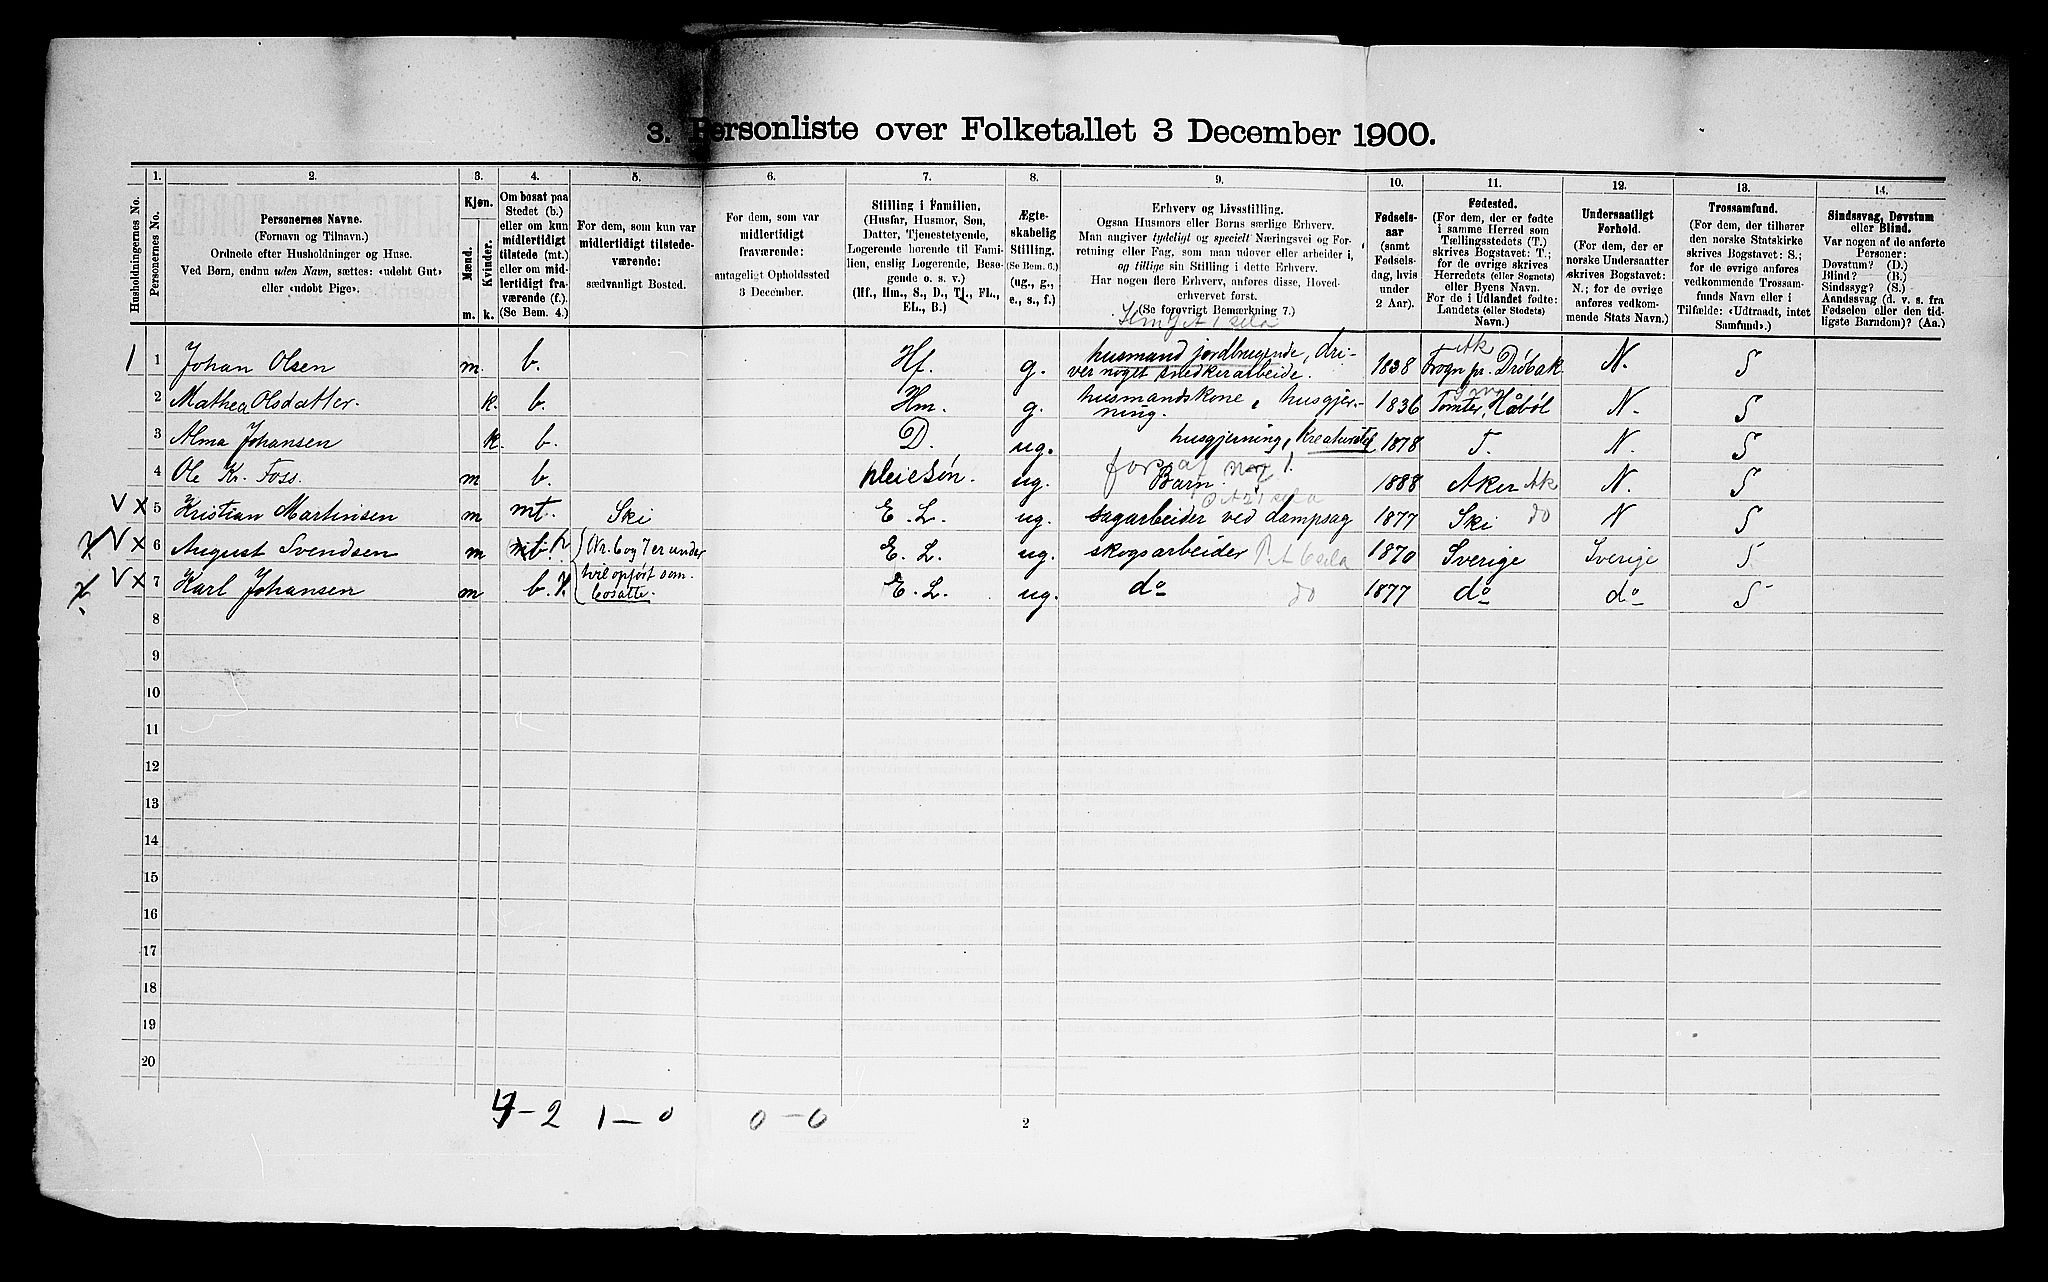 3. Personliste over Folketallet 3 December 1900.
1. 2. 3. 4. 5. 6. 7. 8. 9. 10. 11. 12. 13. 14.
Husholdningernes No.
Personernes No.
Personernes Navne.
(Fornavn og Tilnavn.)
Ordnede efter Husholdninger og Huse.
Ved Børn, endnu uden Navn, sættes: «udøbt Gut»
eller «udøbt Pige».
Kjøn.
Mænd.
Kvinder.
m. k.
Om bosat paa
Stedet (b.)
eller om kun
midlertidigt
tilstede (mt.)
eller om mid-
lertidigt fra-
værende (f.).
(Se Bem. 4.)
For dem, som kun var
midlertidigt tilstede-
værende:
sædvanligt Bosted.
For dem, som var
midlertidigt
fraværende:
antageligt Opholdssted
3 December.
Stilling i Familien.
(Husfar, Husmor, Søn,
Datter, Tjenestetyende,
Logerende hørende til Fami-
lien, enslig Logerende, Besø-
gende o. s. v.)
(Hf., Hm., S., D., Tj., FL.,
EL., B.)
Ægte-
skabelig
Stilling.
(Se Bem. 6.)
(ug., g.,
e., s., f.)
Erhverv og Livsstilling.
Ogsaa Husmors eller Børns særlige Erhverv.
Man angiver tydeligt og specielt Næringsvei og For-
retning eller Fag, som man udøver eller arbeider i,
og tillige sin Stilling i dette Erhverv.
Har nogen flere Erhverv, anføres disse, Hoved-
erhvervet først.
(Se forøvrigt Bemærkning 7.)
Fødsels-
aar
(samt
Fødsels-
dag, hvis
under
2 Aar).
Fødested.
(For dem, der er fødte
i samme Herred som
Tællingsstedets (T.)
skrives Bogstavet: T.;
for de øvrige skrives
Herredets (eller Sognets)
eller Byens Navn.
For de i Udlandet fødte:
Landets (eller Stedets)
Navn.)
Undersaatligt
Forhold.
(For dem, der er
norske Undersaatter
skrives Bogstavet:
N.; for de øvrige
anføres vedkom-
mende Stats Navn.)
Trossamfund.
(For dem, der tilhører
den norske Statskirke
skrives Bogstavet: S.;
for de øvrige anføres
vedkommende Trossam-
funds Navn eller i
Tilfælde: «Udtraadt, intet
Samfund».)
Sindssvag, Døvstum
eller Blind.
Var nogen af de anførte
Personer:
Døvstum? (D.)
Blind? (B.)
Sindssyg? (S.)
Aandssvag (d. v. s. fra
Fødselen eller den tid-
ligste Barndom)? (Aa.)
1 1 Johan Olsen m. b. Hf. g. husmand jordbrugende, dri-
ver noget snedkerarbeide. 1838 Frogn pr. Drøbak Ak N. S
2 Mathea Olsdatter. k. b. Hm. g. husmandskone, husgjer-
ning. 1836 Tomter, Håbøl N. S
3 Alma Johansen k. b. D. ug. husgjerning, Kreaturstel 1878 T. N. S
4 Ole Kr. Foss. m b. pleiesøn. ug. Barn. fors. af No 1. 1888 Aker Ak N. S
V x 5 Kristian Martinsen m mt. Ski E. L. ug. sagarbeider ved dampsag 1877 Ski do N S
V x 6 August Svendsen m b. (Nr. 6 og 7 er under E. L. ug. skogsarbeider 1870 Sverige Sverige S
V x 7 Karl Johansen m b. tvil opført som E. L. ug. do do 1877 do do S
bosatte.
8
9
10
11
12
13
14
15
16
17
18
19
20
4-2 1-0 0-0
2